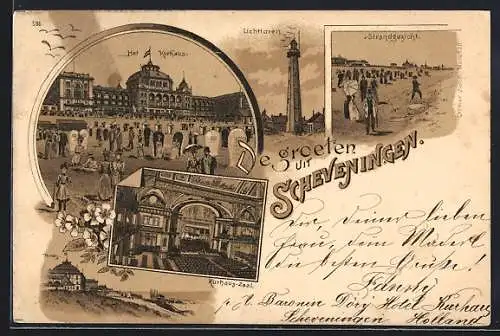 536
Het Kurhaus.
Lichttoren
Strandgezicht.
De groeten
uit
SCHEVENINGEN.
Kurhaus-Zaal.
Dir, Deiner lieben
Frau, dem Mäderl
den besten Gruße!
Fanny
p. A. Baronin Dóry Hotel Kurhaus
Scheveningen Holland